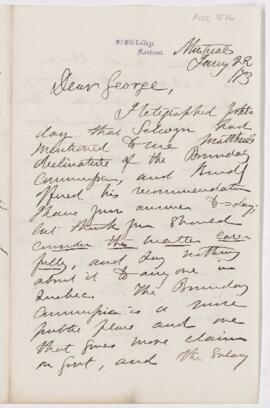 ACC 876
McGill College,
Montreal.
Montreal
Jany 22
/73
Dear George,
I telegraphed yester
day that Selwyn had
mentioned to me Matthews
declinature of the Boundary
Commission, and
offered his recommendation
I have your answer to=day;
but think you should
consider the matter care
fully, and say nothing
about it to any one in
Quebec. The Boundary
Commission is a more
public place and one
that gives more claim
on Govt, and the Salary